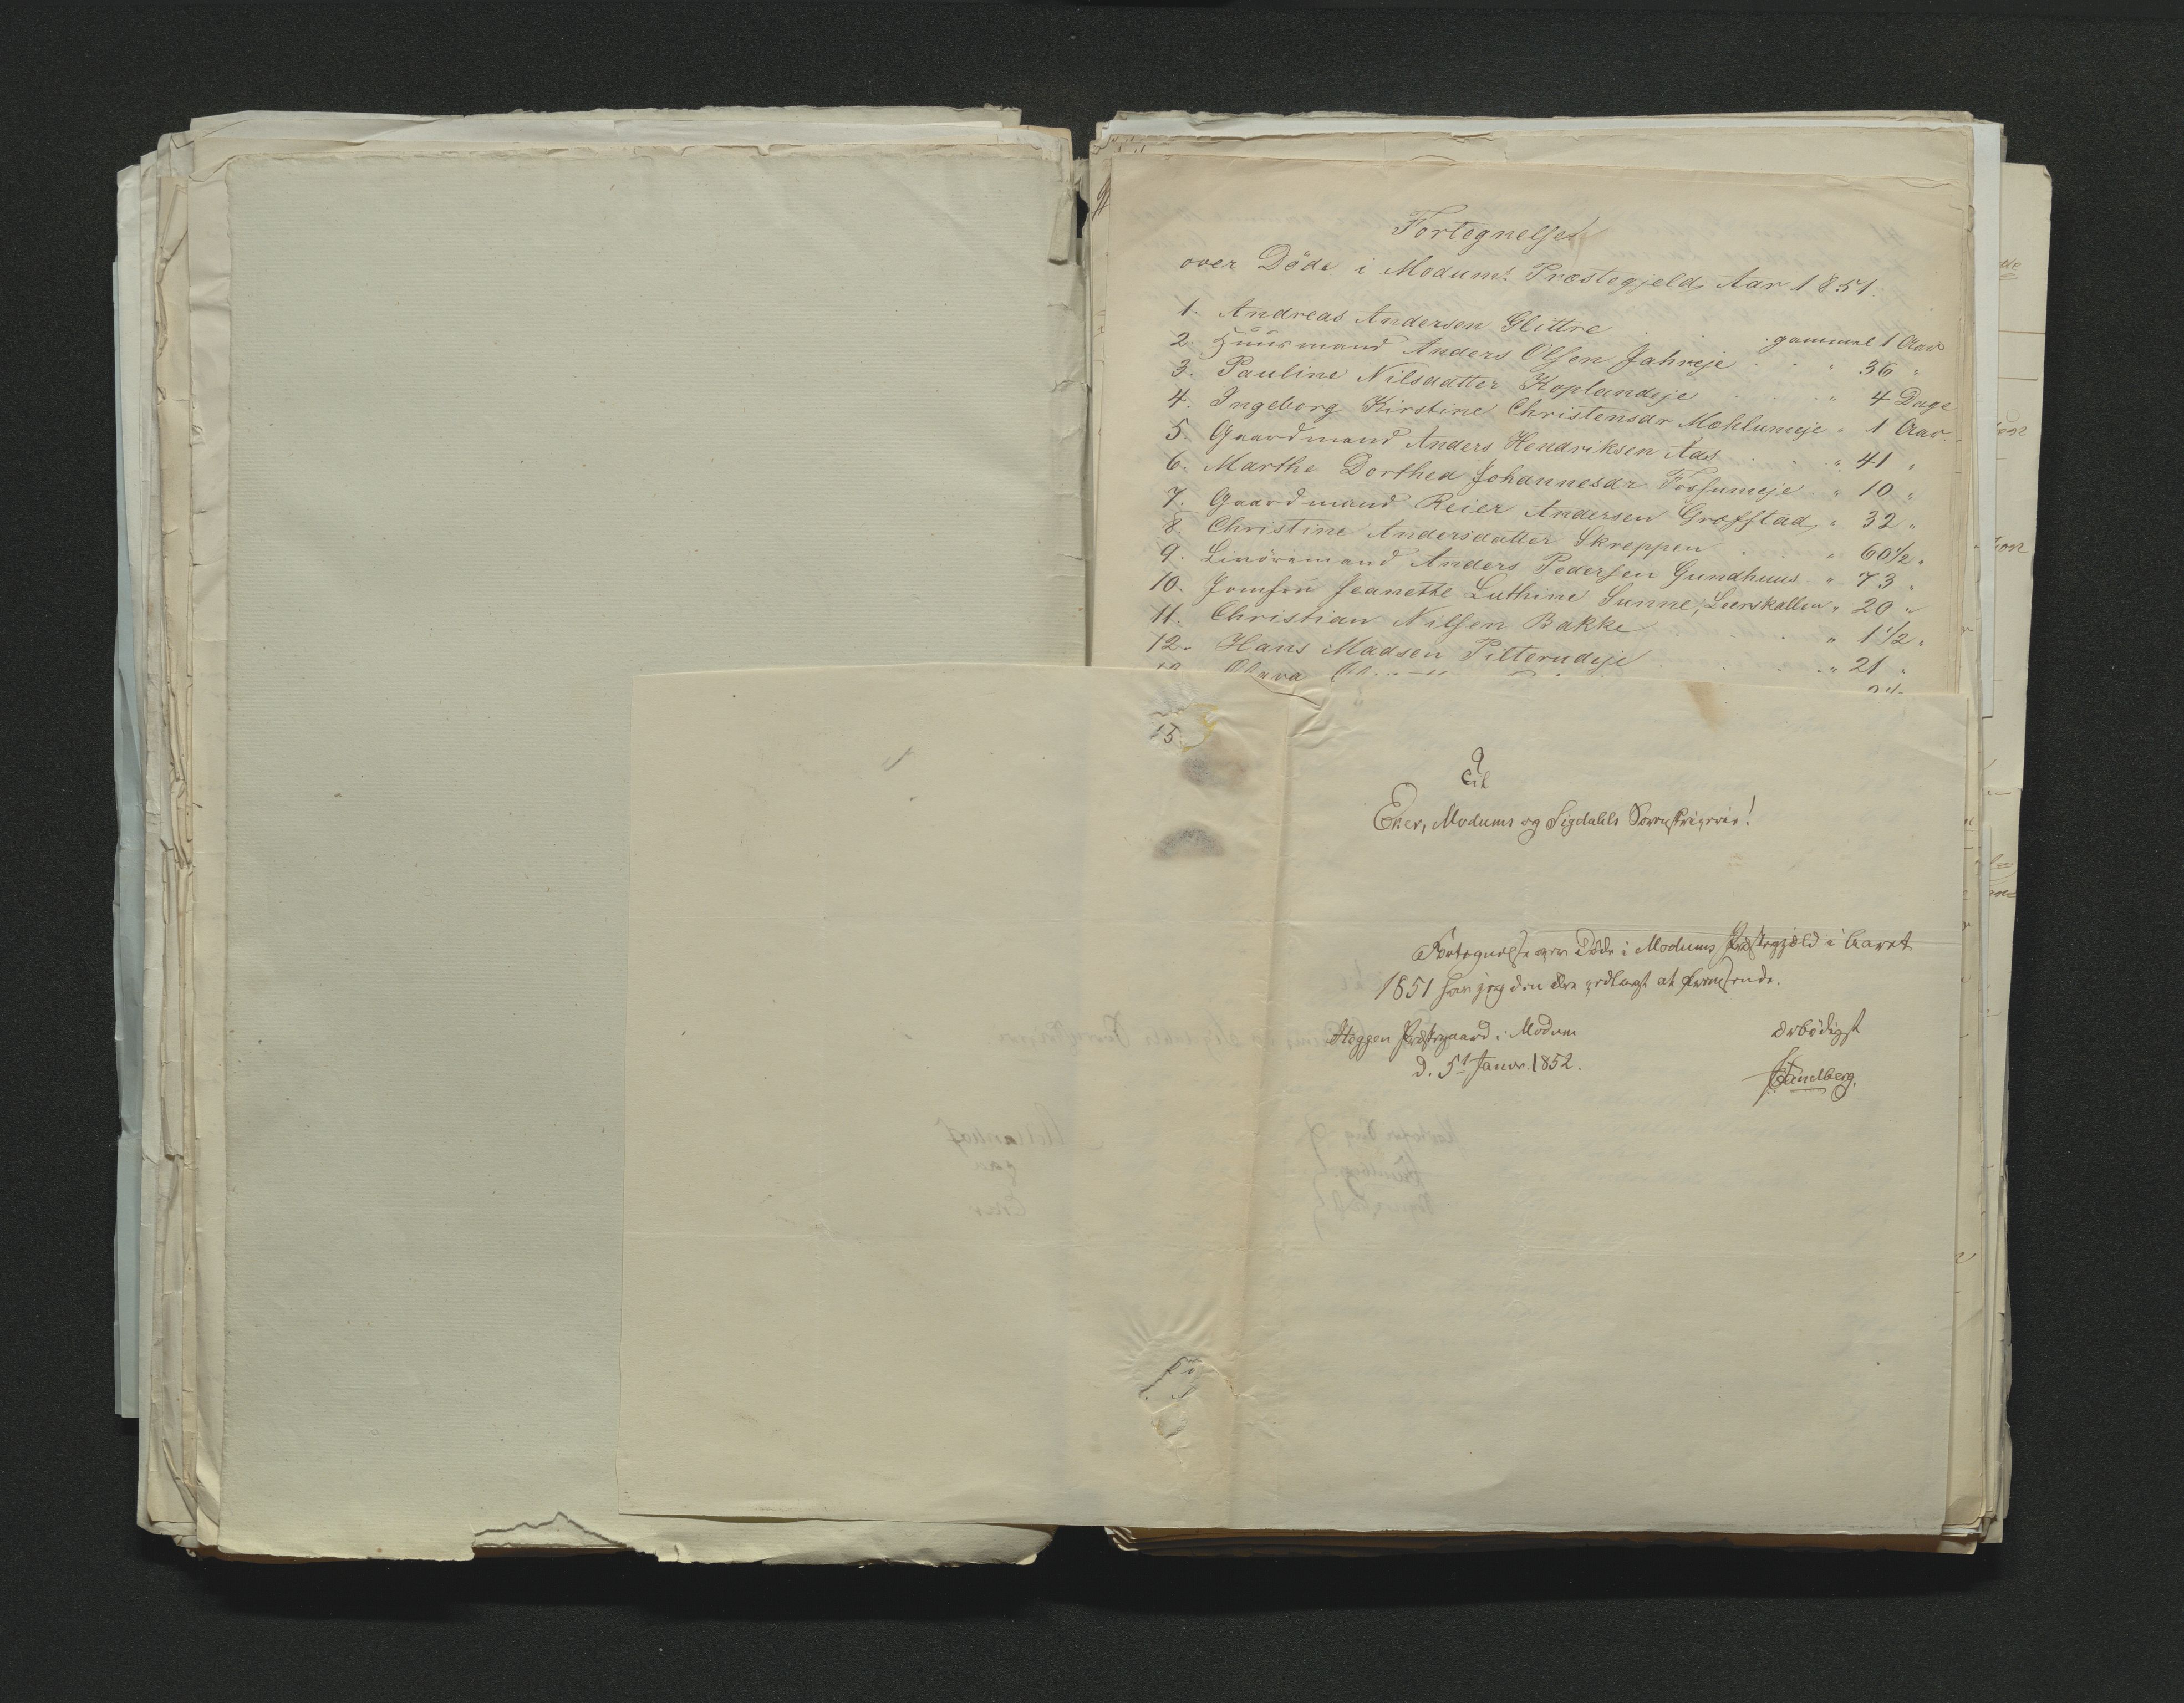 Fortegnelse
over Döde i Modums Præstegjeld, Aar 1851.
1. Andreas Andersen Glittre . . gammel 1 Aar
2. Huusmand Anders Olsen Jahreje . . " 36 "
3. Pauline Nilsdatter Koplandeje . . " 4 Dage
4. Ingeborg Kirstine Christensdr Mæhlumeje " 1 Aar
5. Gaardmand Anders Hendriksen Aas . . " 41 "
6. Marthe Dorthea Johannesdr Fossumeje " 10 "
7. Gaardmand Reier Andersen Grøfstad, " 32 "
8. Christine Andersdatter Skreppen . . " 60½ "
9. Anders Pedersen Gundhuus " 73 "
10. Jomfru Jeanette Luthine Sunne, Leerskallen " 20 "
11. Christian Nilsen Bakke . . " 1½ "
12. Hans Madsen Pitterudeje . . " 21 "
Til
Eker, Modums og Sigdahls Sorenskriveri!
Fortegnelse over Døde i Modums Præstegjæld i Aaret
1851 har jeg den Ære vedlagt at fremsende.
Heggen Præstegaard i Modum
ærbödigst
d. 5t Januar 1852.
Sandberg.